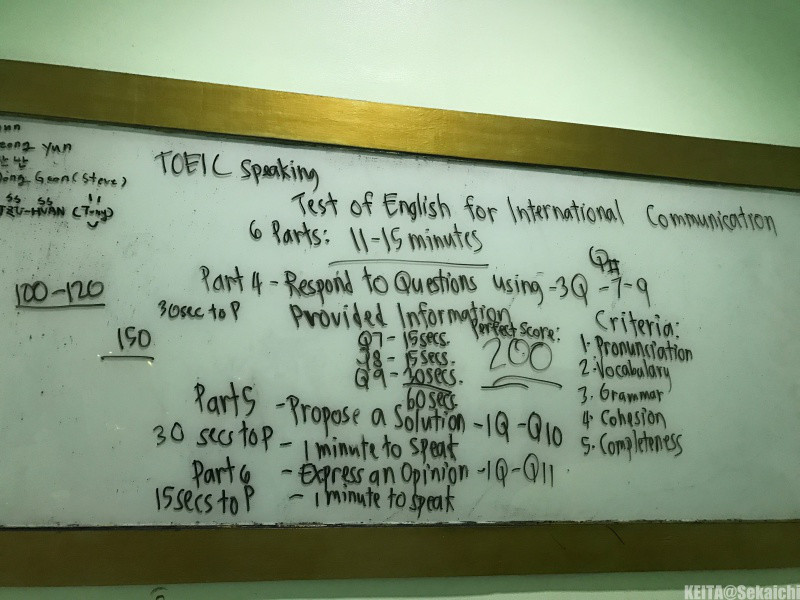 Yun
반반
Geon (Steve)
TZU-HUAN (Tony)
100-120
150
TOEIC Speaking
Test of English for International Communication
6 Parts: 11-15 minutes
Q#
Part 4 - Respond to Questions using -3Q -7-9
30sec to P Provided Information
Q7 - 15secs.
Q8 - 15secs.
Q9 - 30secs.
60secs
Perfect Score:
200
Criteria:
1. Pronunciation
2. Vocabulary
3. Grammar
4. Cohesion
5. Completeness
Part 5 - Propose a Solution -1Q -Q10
30 secs to P - 1 minute to speak
Part 6 - Express an Opinion -1Q -Q11
15secs to P - 1 minute to speak
KEITA@Sekaichi